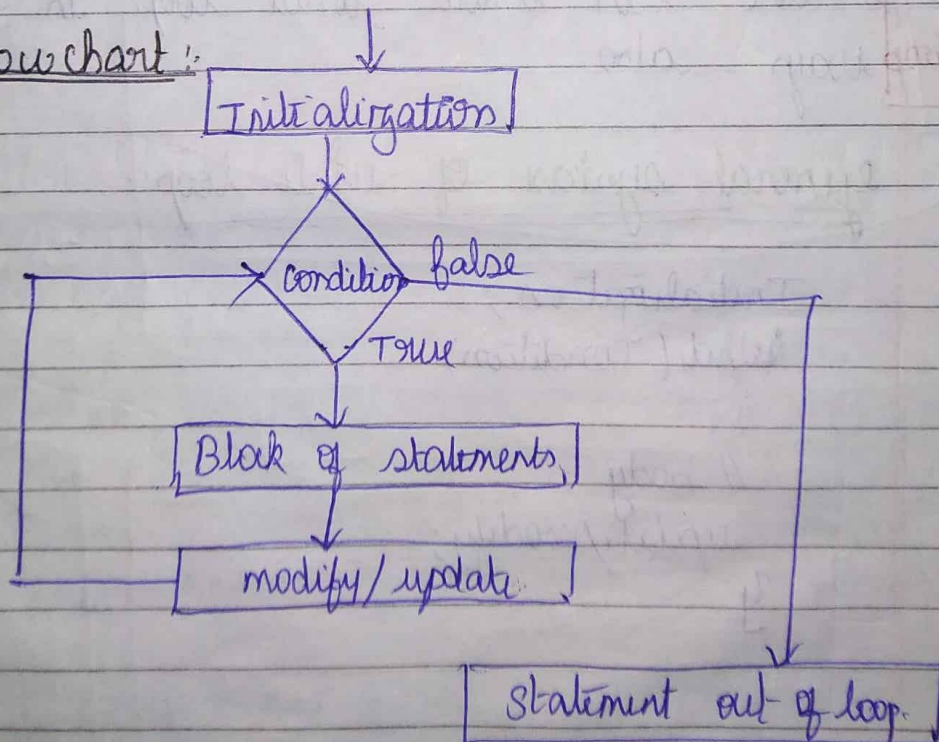 owchart :-
Initialization
Condition false
True
Block of statements
modify/update
Statement out of loop.